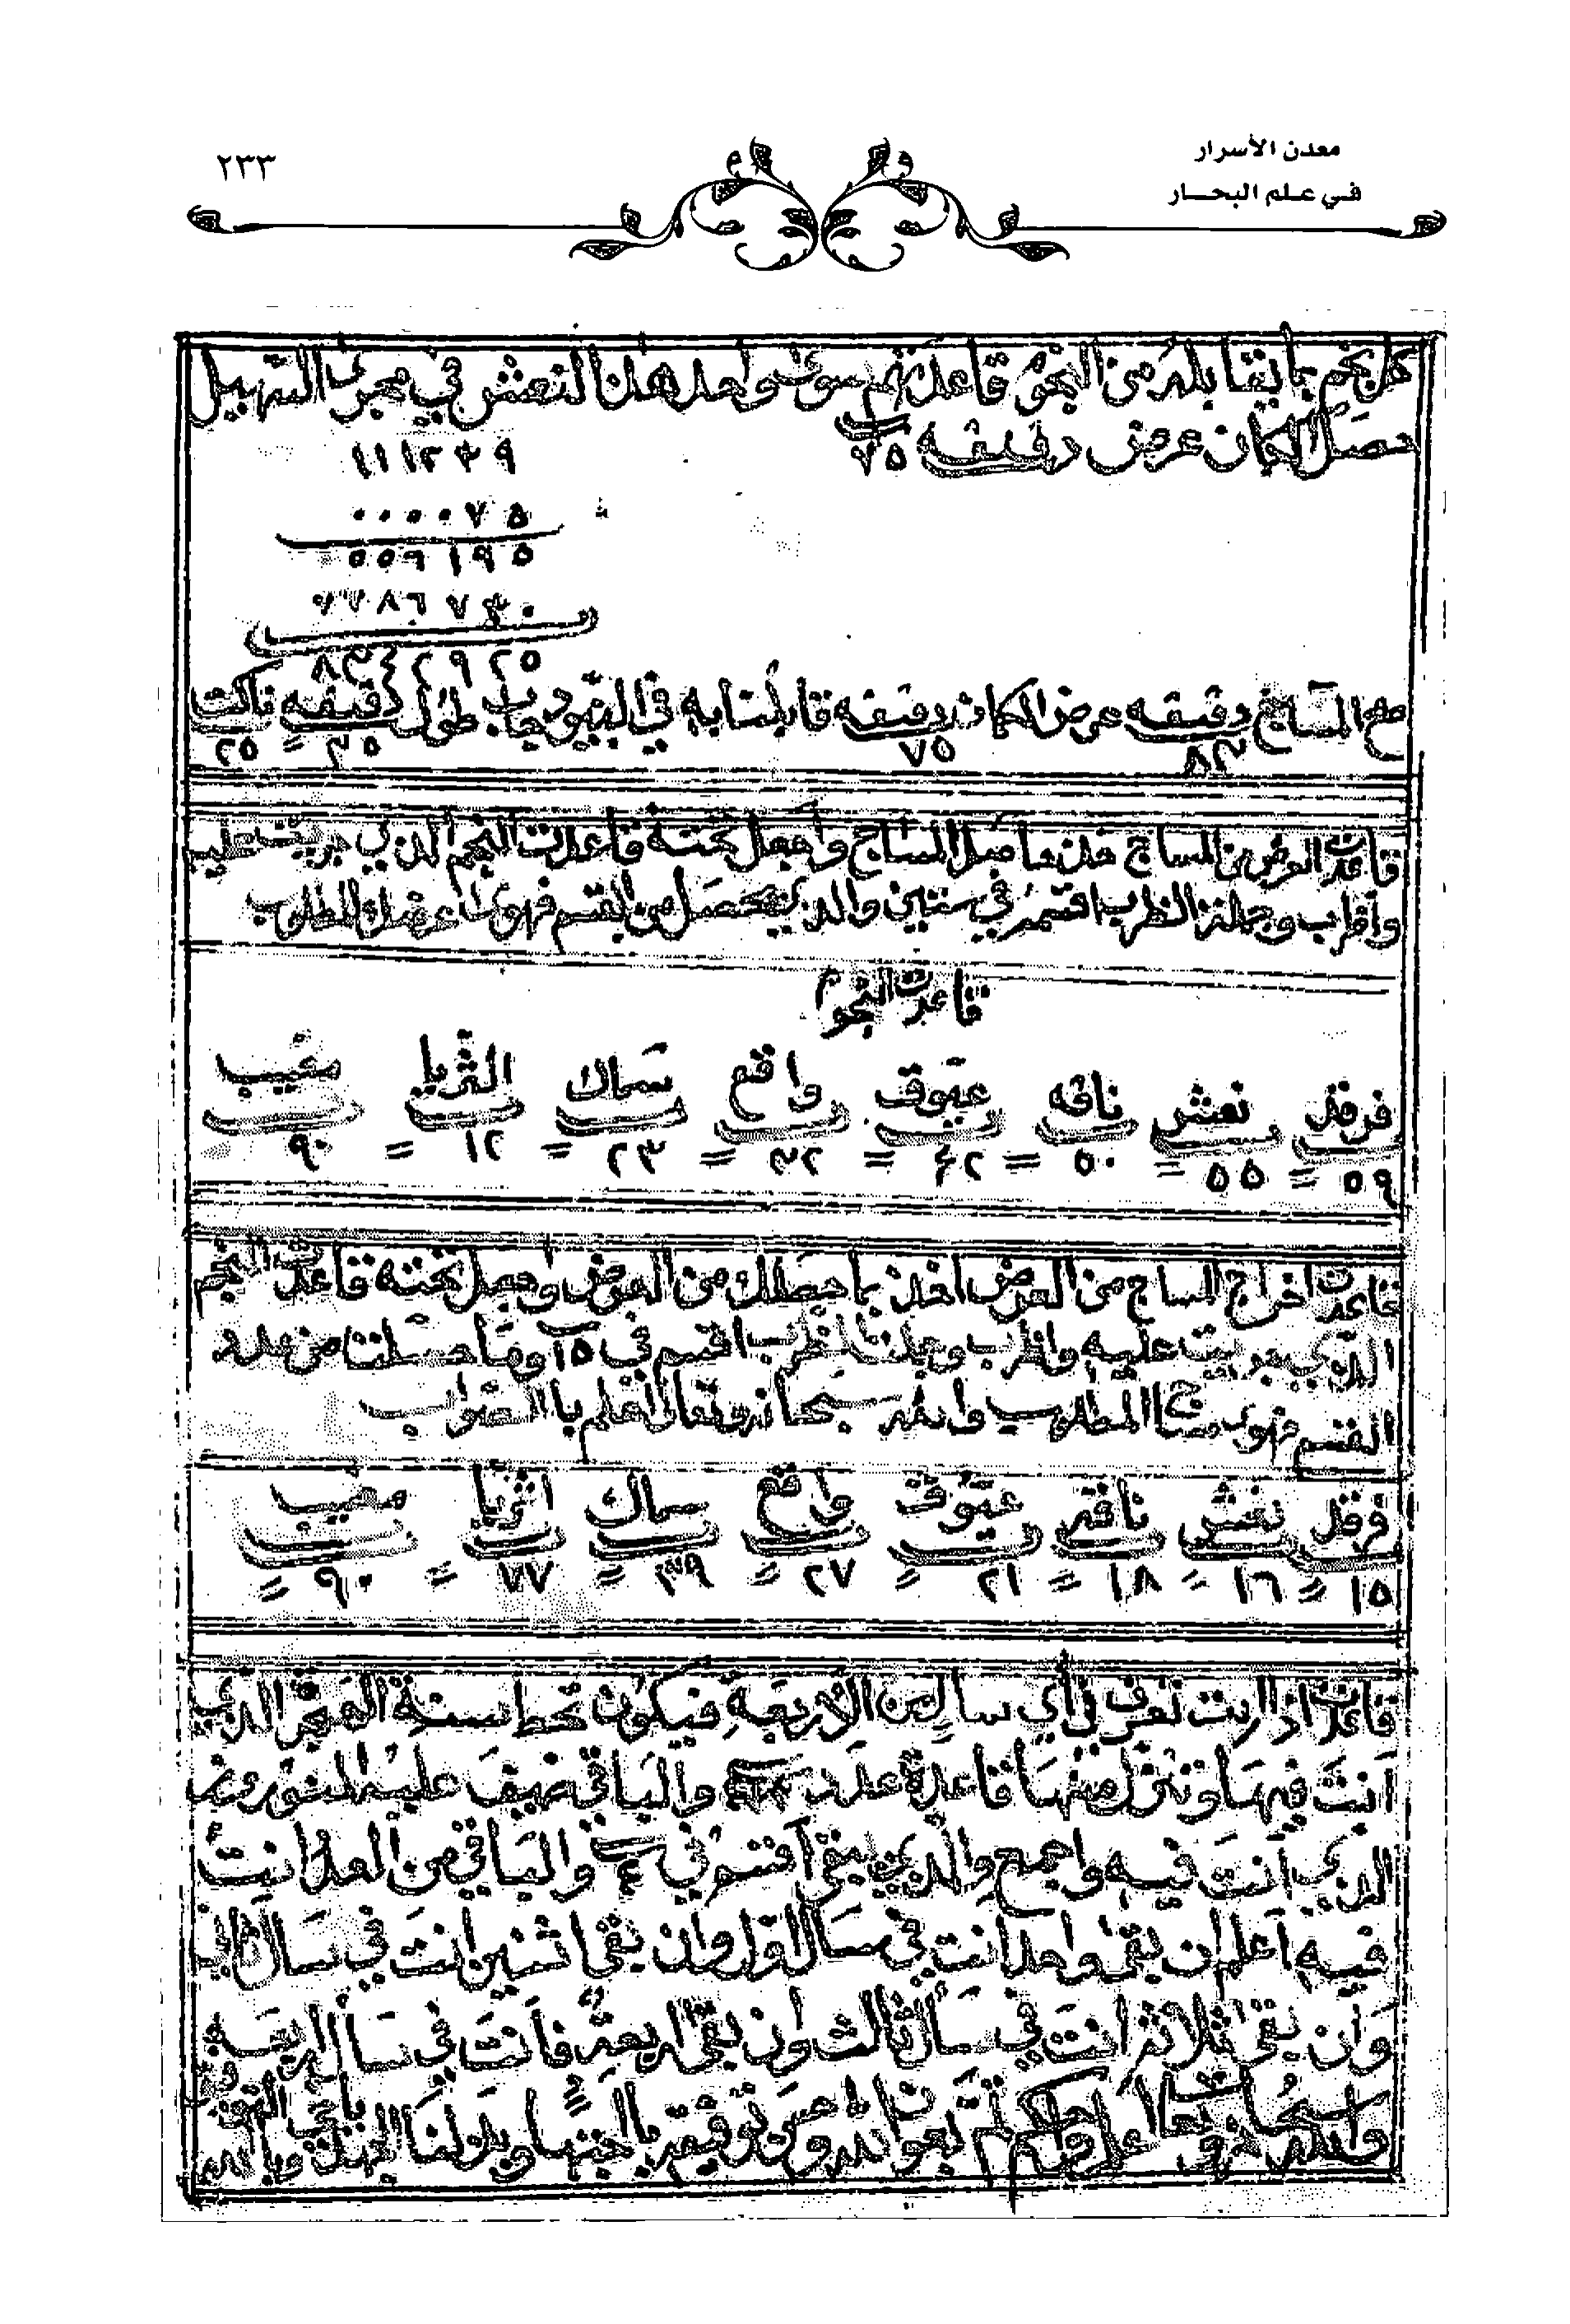 معدن الأسرار
في علم البحار
٢٣٣
كل نجم بما يقابله من النجوم قاعدتهم سوى واحد هذا النعش في مجرى السهيل
حصل المكان عرض دقيقه ٧٥
١١١٢٣٩
٠٠٠٠٧٥
٥٥٦١٩٥
٧٧٨٦٧٣٠
٨٣٤٢٩٢٥
صح المساج دقيقه ٨٣ عرض المكان دقيقه ٧٥ قابلتا به في طول دقيقه ٣٥ = ٢٥
قاعدت العرض من المساج خذ ما حصل المساج واجعل تحته قاعدت النجم الذي جريت عليه
واظرب وجملة الظرب اقسمه في ستين والذي يحصل من القسم فهو عرضك المطلوب
قاعدت النجوم
فرقد نعش ناقه عيوق واقع سماك الثريا مغيب
٥٩ = ٥٥ = ٥٠ = ٤٢ = ٣٢ = ٢٣ = ١٢ = ٩٠
قاعدت اخراج المساج من العرض اخذ بما حصلك من العرض واجعل تحته قاعدت النجم
الذي جريت عليه واظرب وجملة الظرب اقسم في ١٥ وما حصلنا من عدد
القسم فهو مساج المطلوب والله سبحانه وتعالى اعلم باالصواب
فرقد نعش ناقه عيوق واقع سماك اثريا مغيب
١٥ = ١٦ = ١٨ = ٢١ = ٢٧ = ٣٩ = ٧٧ = ٩٠ =
قاعدت اذا اردت تعرف في أي سال من الاربعة فيكون تحط سنة الهجر الذي
انت فيها وتنزل منها قاعدة عدد والباقي ضيف عليه النوروز
الذي أنت فيه واجمع والذي يبقى أقسم في ٤ والباقي من العدد انت
فيه اعلم ان بقى واحد انت في سال اول وان بقى اثنين انت في سال ثاني
وان بقى ثلاثه انت في سال ثالث وان بقى اربعة فأنت في سال اربعه
والله سبحانه وتعالى اعلم واحكم تم بعون الله وحسن توفيقه